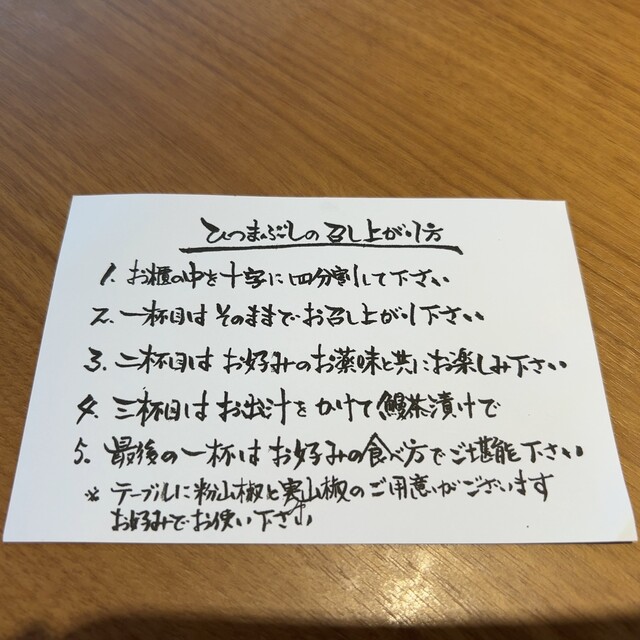 ひつまぶしの召し上がり方
1. お櫃の中を十字に四分割して下さい
2. 一杯目はそのままでお召し上がり下さい
3. 二杯目はお好みのお薬味と共にお楽しみ下さい
4. 三杯目はお出汁をかけて鰻茶漬けで
5. 最後の一杯はお好みの食べ方でご堪能下さい
※ テーブルに粉山椒と実山椒のご用意がございます
お好みでお使い下さい